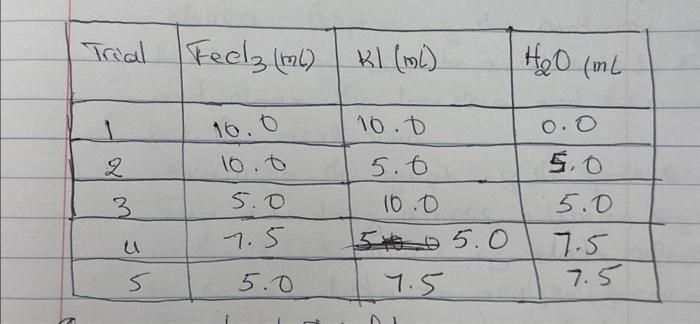 Trial FeCl3 (mL) KI (mL) H2O (mL
1 10.0 10.0 0.0
2 10.0 5.0 5.0
3 5.0 10.0 5.0
4 7.5 5.0 7.5
5 5.0 7.5 7.5